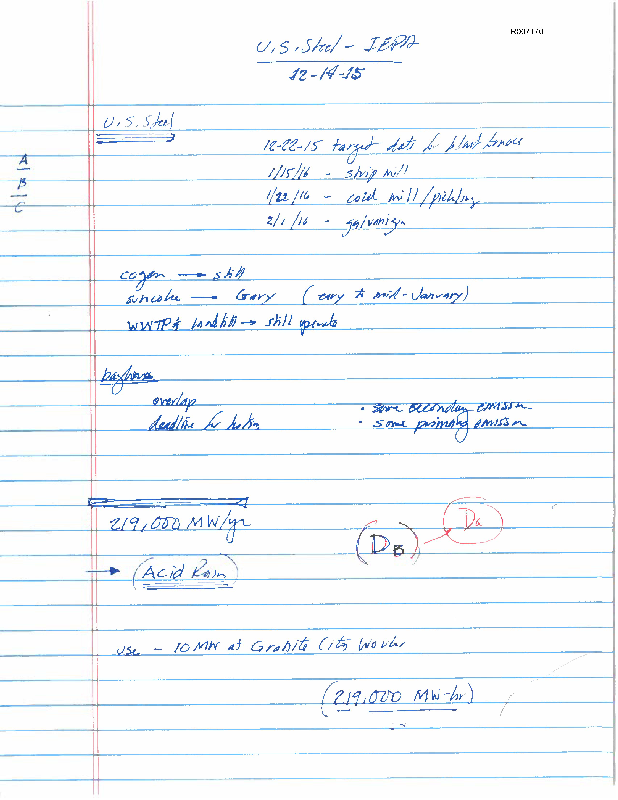 U.S. Steel - IEPA
12-14-15
U.S. Steel
12-22-15 target date for blast furnace
A
1/15/16 - strip mill
B
1/22/16 - cold mill / pickling
C
2/1/16 - galvanizing
cogen → still
suncoke → Gary (early to mid-January)
WWTP & landfill → still operate
baghouse
overlap
• some secondary emission
deadline for
• some primary emission
219,000 MW/yr
DB
→ (Acid Rain)
use - 10 MW at Granite City Works
(219,000 MW-hr)